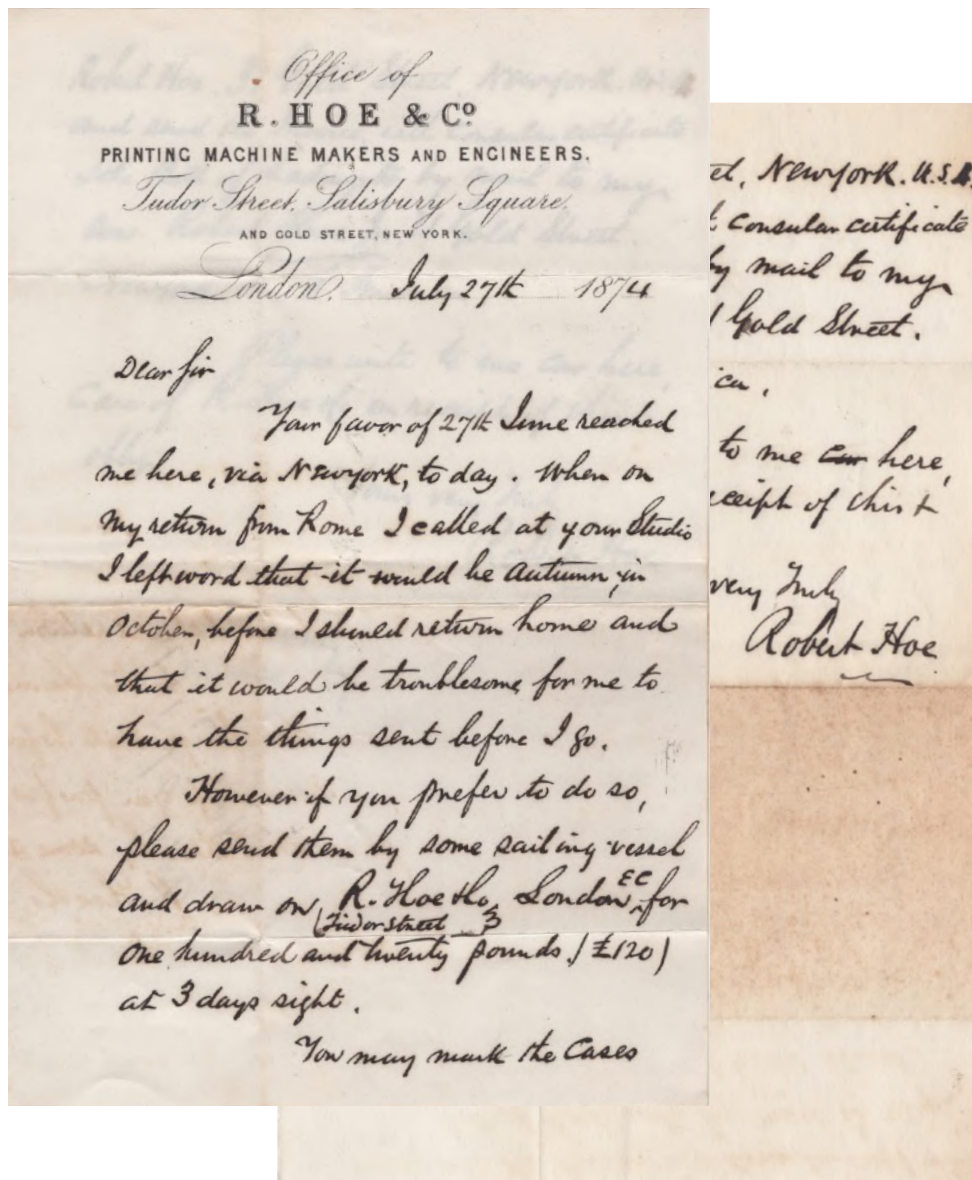 Office of
R. HOE & Co
PRINTING MACHINE MAKERS AND ENGINEERS.
Tudor Street, Salisbury Square,
AND GOLD STREET, NEW YORK.
London, July 27th 1874
Dear Sir
Your favor of 27th June reached
me here, via Newyork, to day. When on
my return from home I called at your Studio
I left word that it would be Autumn, in
October, before I should return home and
that it would be troublesome for me to
have the things sent before I go.
However if you prefer to do so,
please send them by some sailing vessel
and draw on R. Hoe & Co London EC for
(Tudor Street
one hundred and twenty pounds (£120)
at 3 days sight.
You may mark the Cases
et, Newyork. U.S.A.
consular certificate
by mail to my
Gold Street.
ca.
to me here,
eceipt of this &
very Truly
Robert Hoe